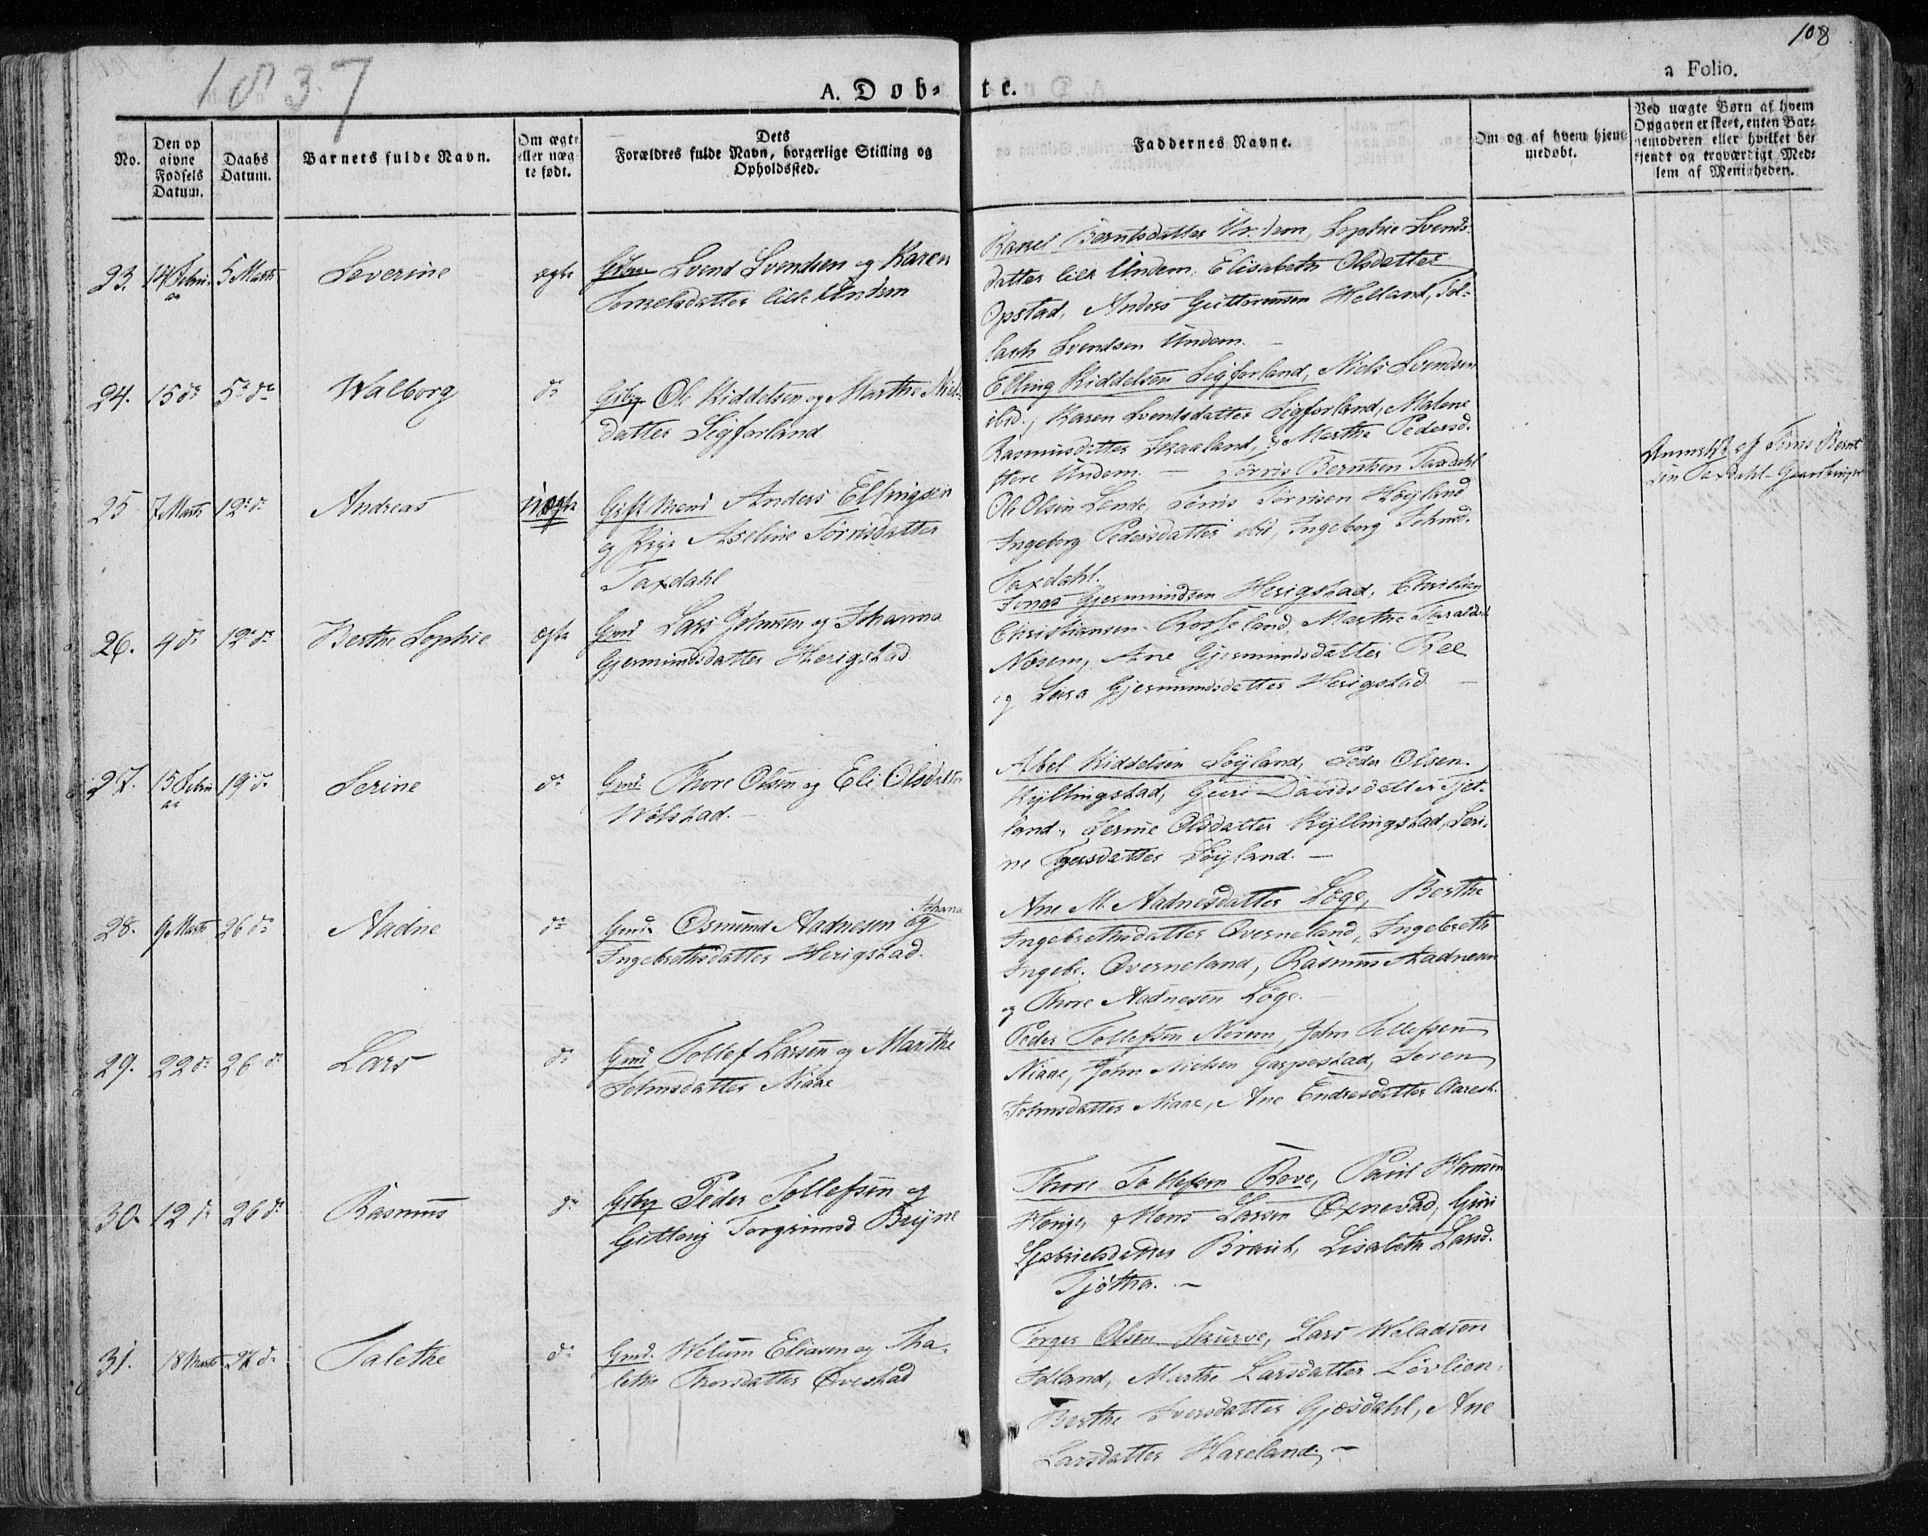 108
1837
A. Døb-te.
a Folio.
No.
Den op givne Fødsels Datum.
Daabs Datum.
Barnets fulde Navn.
Om ægte eller uægte født.
Dets Forældres fulde Navn, borgerlige Stilling og Opholdssted.
Faddernes Navne.
Om og af hvem hjemmedøbt.
Ved uægte Børn af hvem Opgaven er skeet, enten Barnemoderen eller hvilket bekjendt og troværdigt Medlem af Menigheden.
23. 14 Febru 5 Marts Severine ægte
Svend Svendsen og Karen
Torkelsdatter lille Undem
Berntsdatter Undem, Sophie Svends-
datter lille Undem. Elisabeth Olsdatter
Opstad, Anders Guttormsen Helland, Tol-
lach Svendsen Undem.
24. 15 d° 5 d° Walborg d°
Ole Kiddelsen og Marthe Niels-
datter Sigforland
Elling Kiddelsen Sigforland, Niels Svendsen
ibid., Karen Svendsdatter Sigforland, Malene
Rasmusdatter Skaaland, Marthe Pedersd.
Undem.
25 7 Marts 12 d° Andreas uægte
Gift Mand Anders Ellingsen
og Pige Aseline Tørrisdatter
Taxdahl
Tørris Berntsen Taxdahl
Ole Olsen Lende, Tørris Tørrisen Høyland
Ingeborg Pedersdatter ibid, Ingeborg Johnsd.
Taxdahl.
Anmeldt af Tørris Bernt
sen Taxdahl
26. 4 d° 12 d° Berthe Sophie ægte
Gmd Lars Johnsen og Johanna
Gjermundsdatter Herigstad
Jonas Gjermundsen Herigstad, Christian
Christiansen Rosseland, Marthe Taraldsd.
Nosem, Ane Gjermundsdatter Ree
og Gjermundsdatter Herigstad
27. 15 Febru 19 d° Serine d°
Gmd Thore Olsen og Eli Olsdatter
Wolstad.
Abel Kiddelsen Søyland, Peder Olsen
Kyllingstad, Guri Davidsdatter Tjet-
land, Serine Olsdatter Kyllingstad, Seri-
ne Søyland.
28. 9 Marts 26 d° Aadne d°
Gmd. Osmund Aadnesen og Johana
Ingebrethsdatter Herigstad.
Ane M. Aadnesdatter Løge, Berthe
Ingebrethsdatter Øverneland, Ingebreth
Ingebr. Øverneland, Rasmus Aadnesen
og Thore Aadnesen Løge.
29. 22 d° 26 d° Lars d°
Gmd Tollef Larsen og Marthe
Johnsdatter Niaae
Peder Tollefsen Norem, John Tollefsen
Niaae, John Nielsen Gaspestad, Seren
Johnsdatter Niaae, Ane Endresdatter Aarest.
30. 12 d° 26 d° Rasmus d°
Peder Tollefsen og
Torgrimsd Bryne
Thore Tollefsen Rove, Paul
Mons Larsen Oxnevad, Guri
Gabrielsdatter Braut, Lisabeth Larsd.
Tjøtha.
31. 18 Marts 27 d° Talethe d°
Gmd. Welum Eliasen og Tha-
lethe Thorsdatter Ovestad
Torger Olsen Skurve, Lars Waladsen
Fotland, Marthe Larsdatter Løvlien,
Berthe Iversdatter Gjøsdahl, Ane
Larsdatter Hareland.